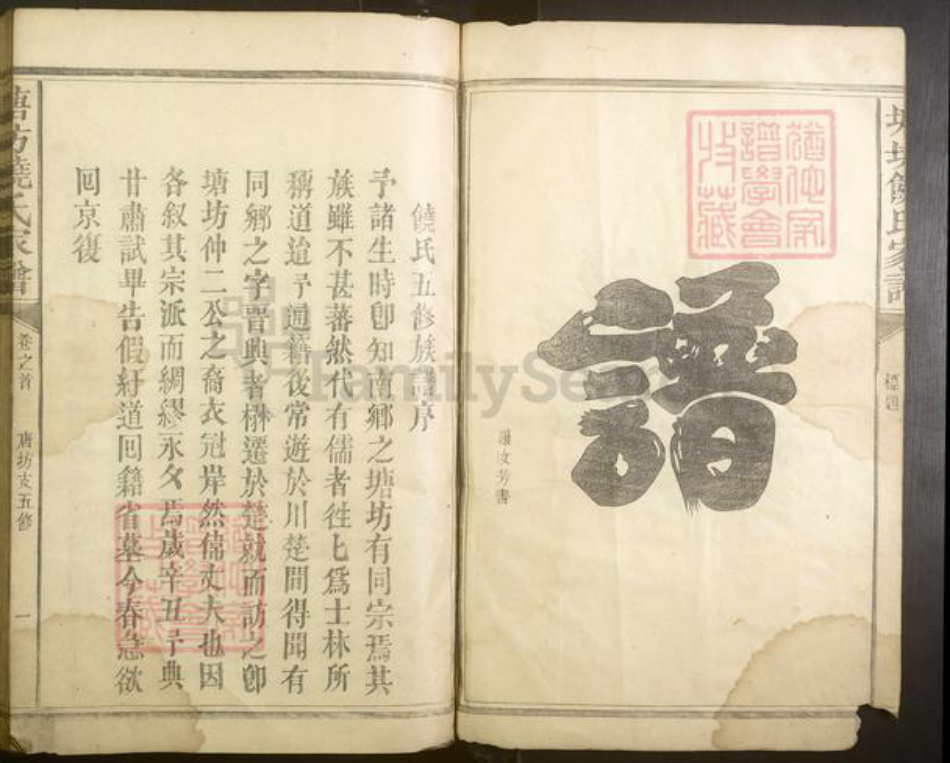 塘坊饒氏家譜
標題
譜
羅汝芳書
饒氏五修族譜序
予諸生時卽知南鄉之塘坊有同宗焉其
族雖不甚蕃然代有儒者徃匕爲士林所
稱道迨予通籍後常遊於川楚間得聞有
同鄉之字晋興者楙遷於楚就而訪之卽
塘坊仲二公之裔衣冠岸然儒丈夫也因
各叙其宗派而綢繆永夂焉歲辛丑予典
甘肅試畢告假紆道囘籍省墓今春急欲
囘京復
塘坊饒氏家譜
卷之首
塘坊支五修
一
FamilySearch